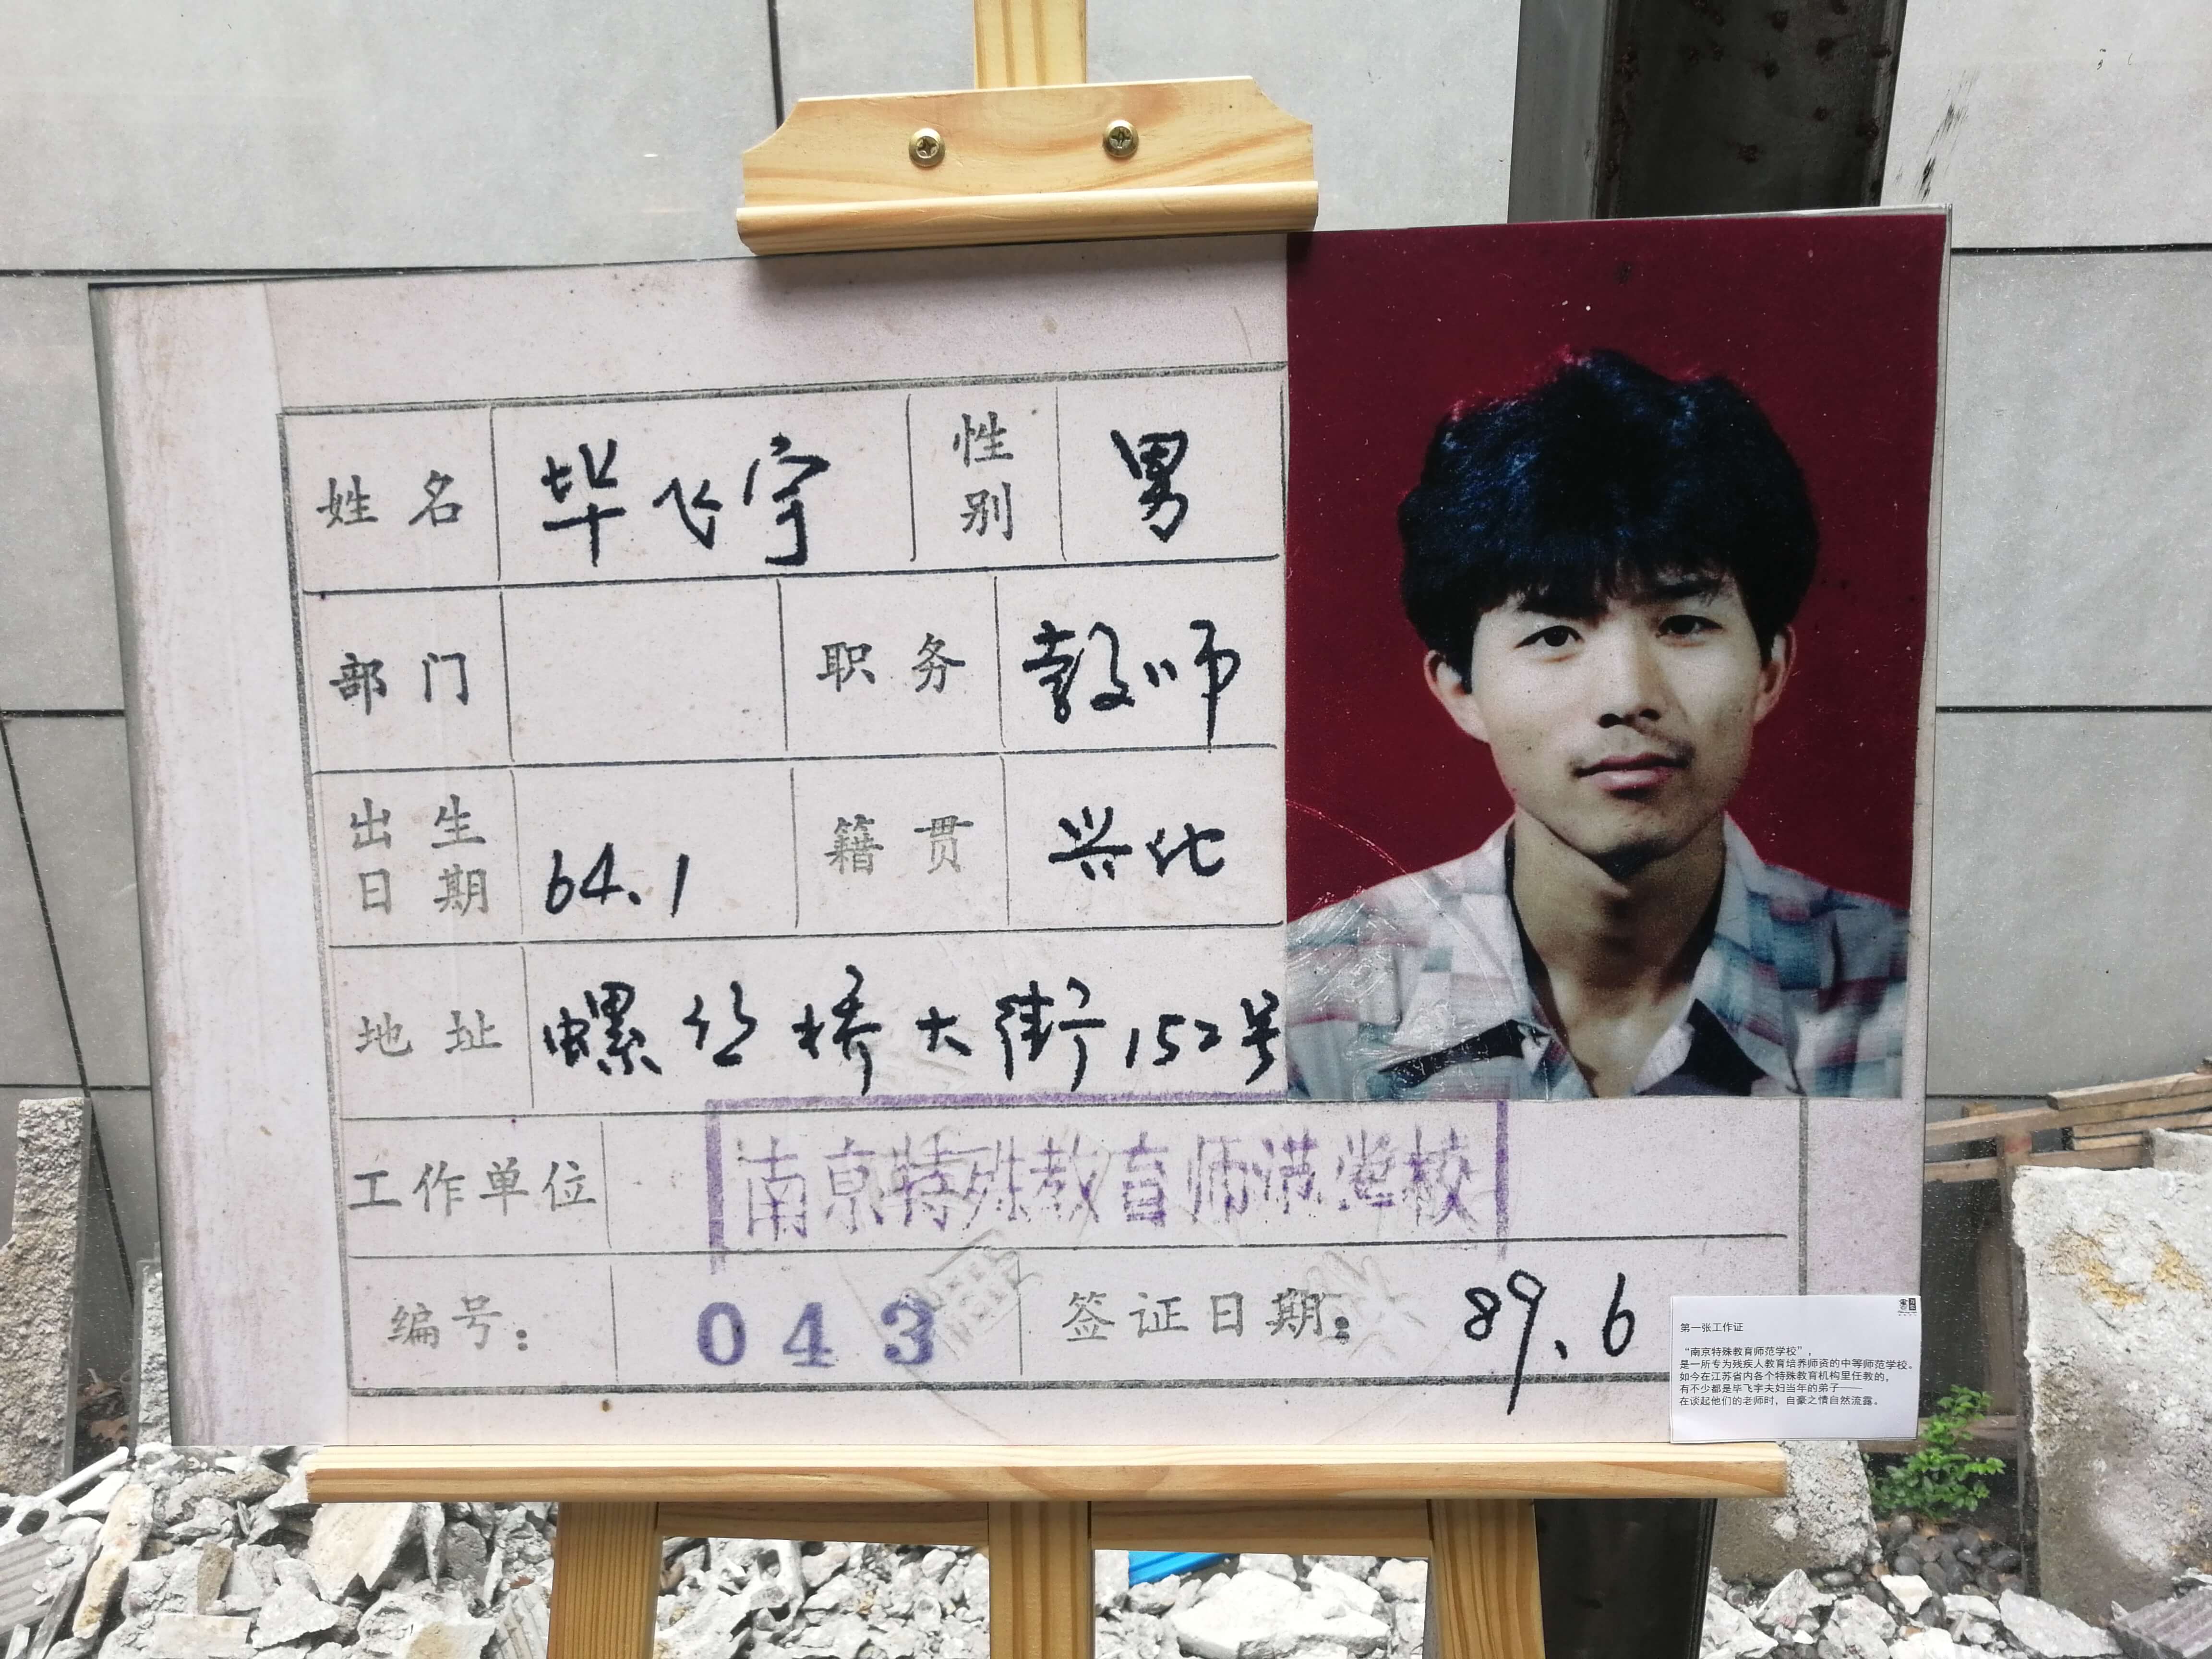 姓名 毕飞宇 性别 男
部门 职务 教师
出生日期 64.1 籍贯 兴化
地址 螺丝桥大街152号
工作单位 南京特殊教育师范学校
编号： 043 签证日期： 89.6
第一张工作证
“南京特殊教育师范学校”，
是一所专为残疾人教育培养师资的中等师范学校。
如今在江苏省内各个特殊教育机构里任教的，
有不少都是毕飞宇夫妇当年的弟子——
在谈起他们的老师时，自豪之情自然流露。